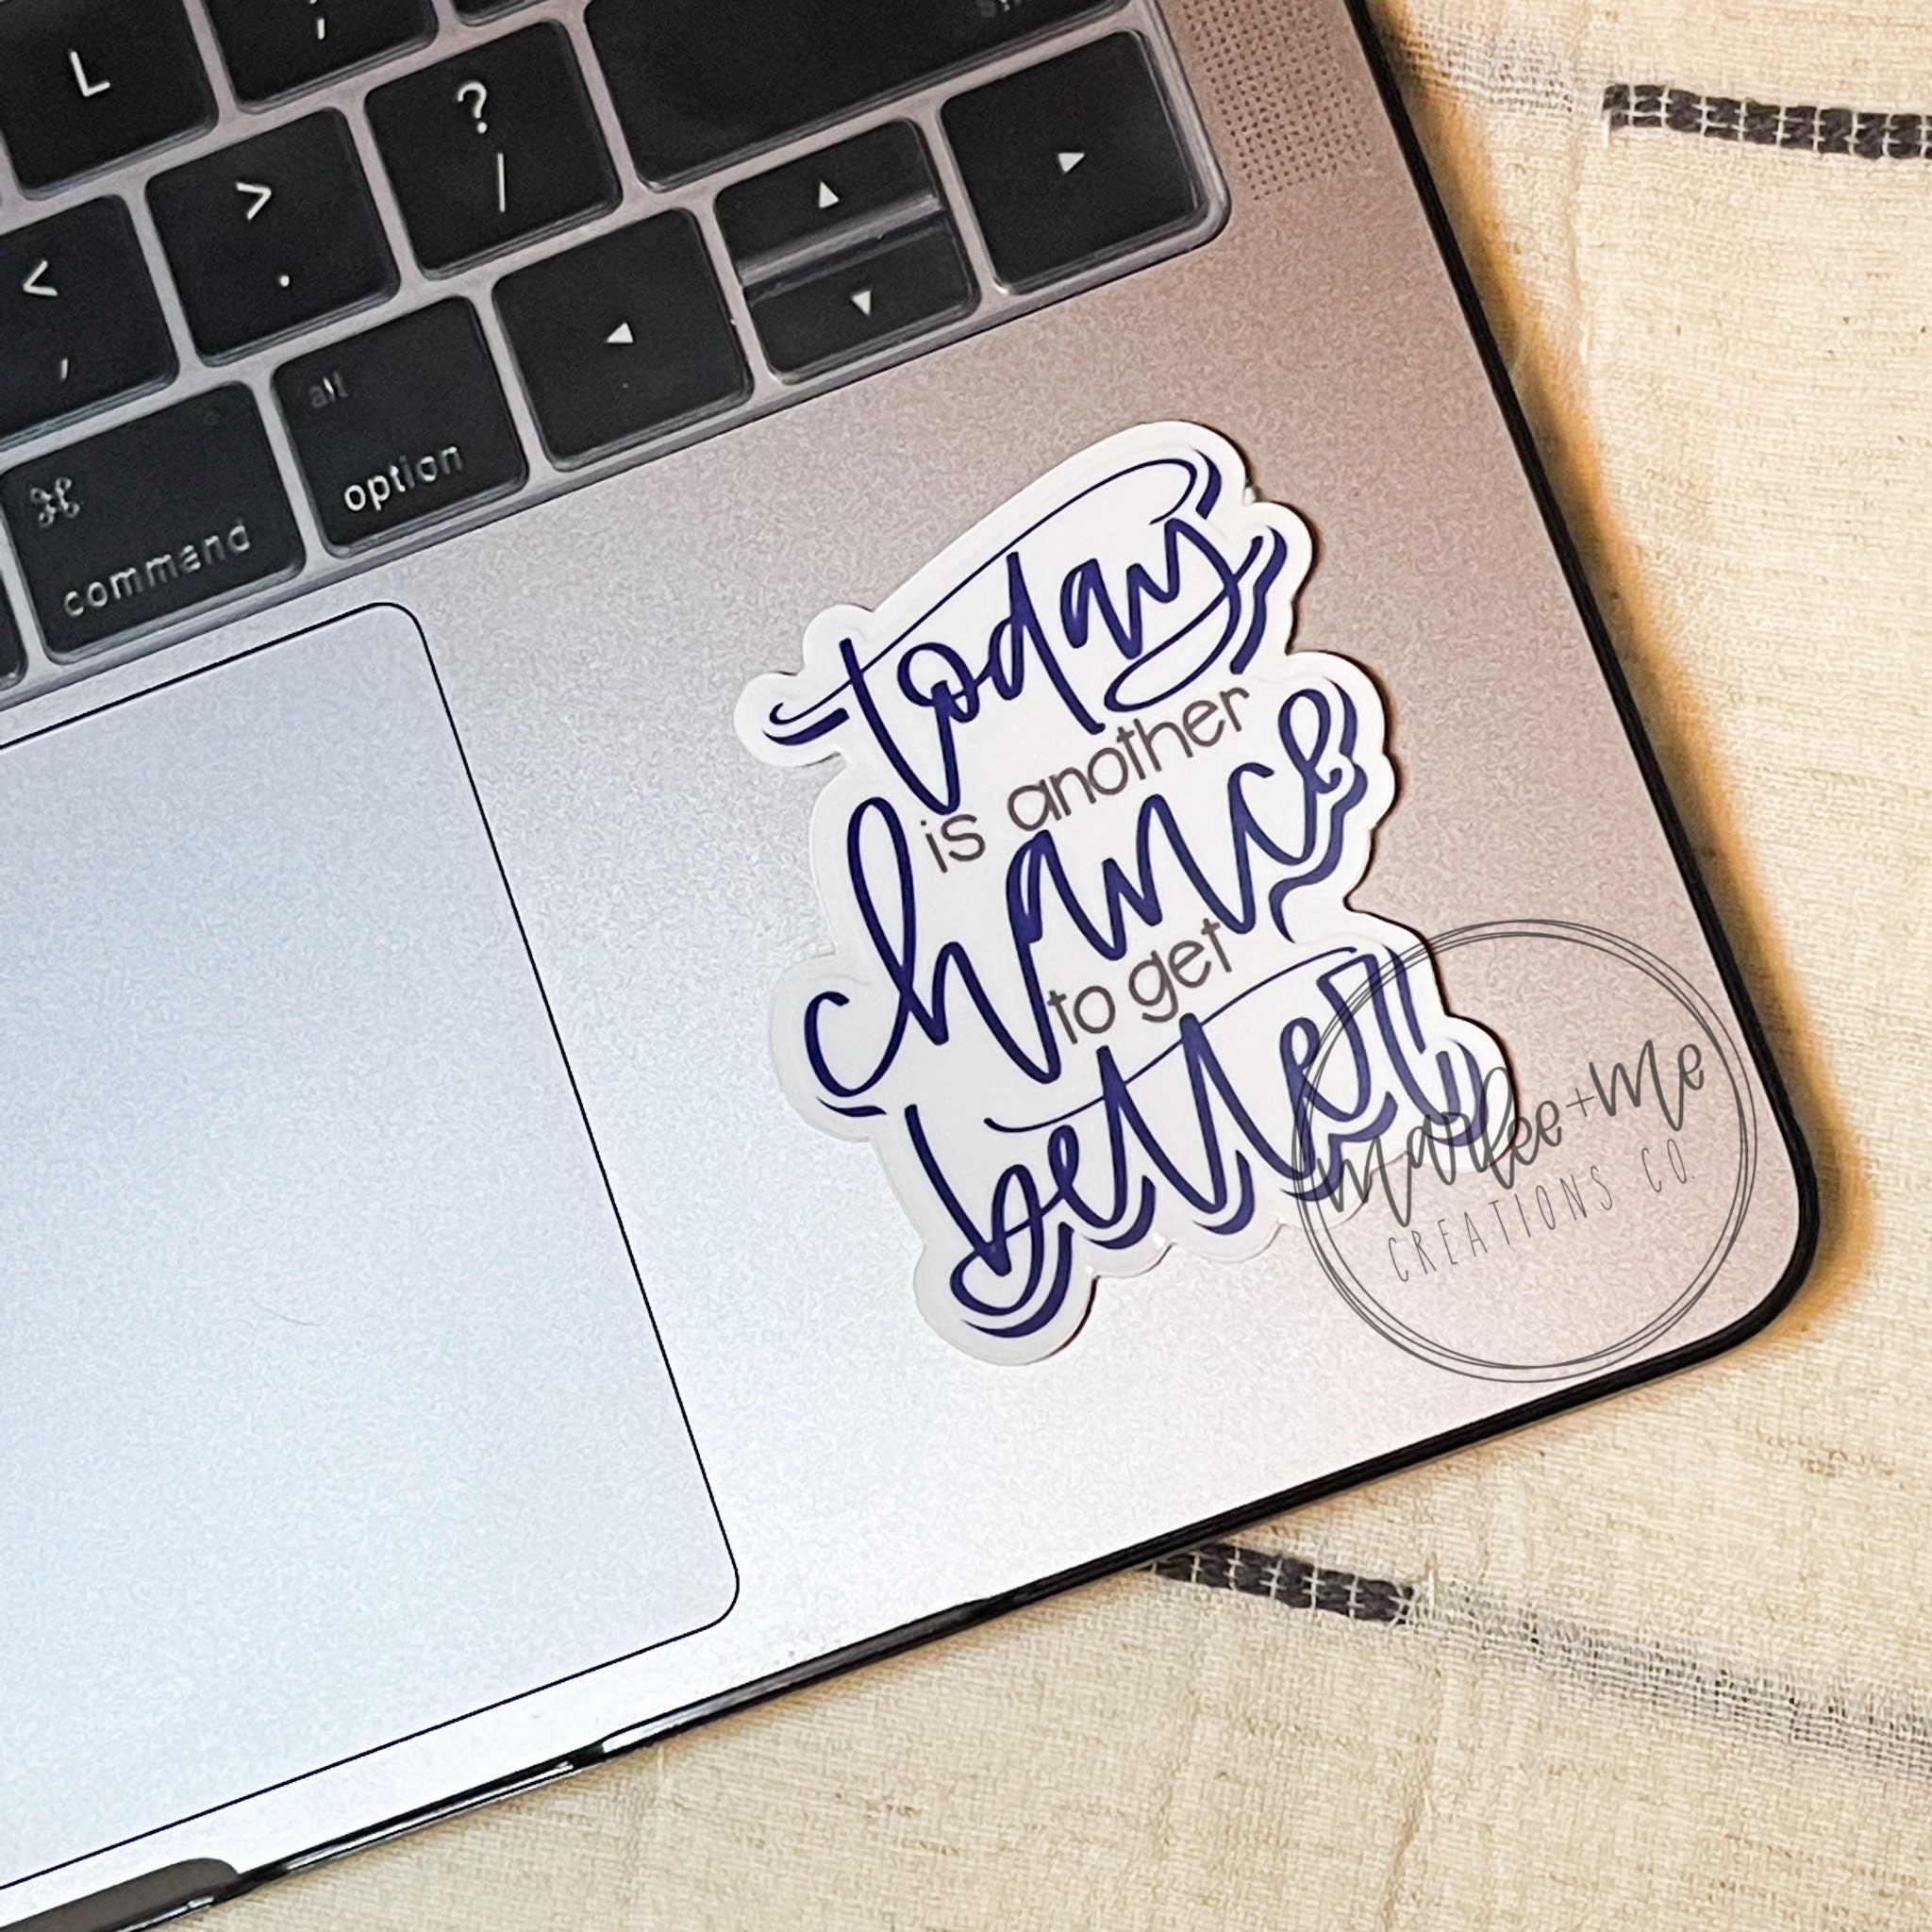 L
;
?
/
>
.
<
,
alt
option
⌘
command
today
is another
chance
to get
better
marlee+me
CREATIONS CO.